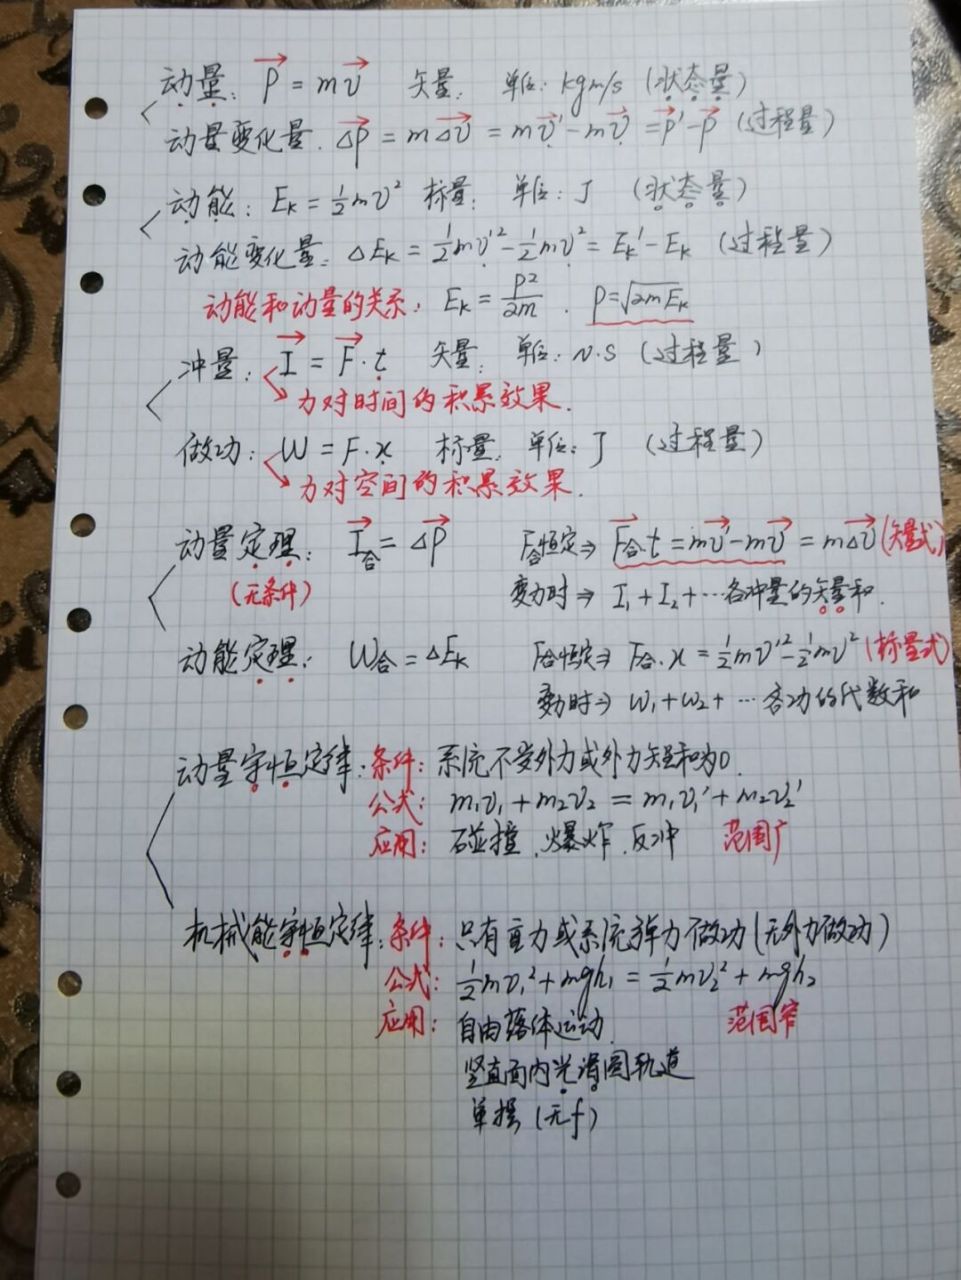 动量: p = mv 矢量. 单位: kgm/s (状态量)
动量变化量. Δp = mΔv = mv' - mv = p' - p (过程量)
动能: Eₖ = ½mv² 标量. 单位: J (状态量)
动能变化量: ΔEₖ = ½mv'² - ½mv² = Eₖ' - Eₖ (过程量)
动能和动量的关系: Eₖ = p²/2m . p = √2mEₖ
冲量: I = F·t 矢量. 单位: N·S (过程量)
力对时间的积累效果.
做功: W = F·x 标量. 单位: J (过程量)
力对空间的积累效果.
动量定理: I合 = Δp F合恒定⇒ F合·t = mv' - mv = mΔv (矢量式)
(无条件) 变力时⇒ I₁ + I₂ + …各冲量的矢量和.
动能定理: W合 = ΔEₖ F合恒定⇒ F合·x = ½mv'² - ½mv² (标量式)
变力时⇒ W₁ + W₂ + …各功的代数和
动量守恒定律: 条件: 系统不受外力或外力矢量和为0.
公式: m₁v₁ + m₂v₂ = m₁v₁' + m₂v₂'
应用: 碰撞.爆炸.反冲 范围广
机械能守恒定律: 条件: 只有重力或系统弹力做功(无外力做功)
公式: ½mv₁² + mgh₁ = ½mv₂² + mgh₂
应用: 自由落体运动. 范围窄
竖直面内光滑圆轨道
单摆 (无f)